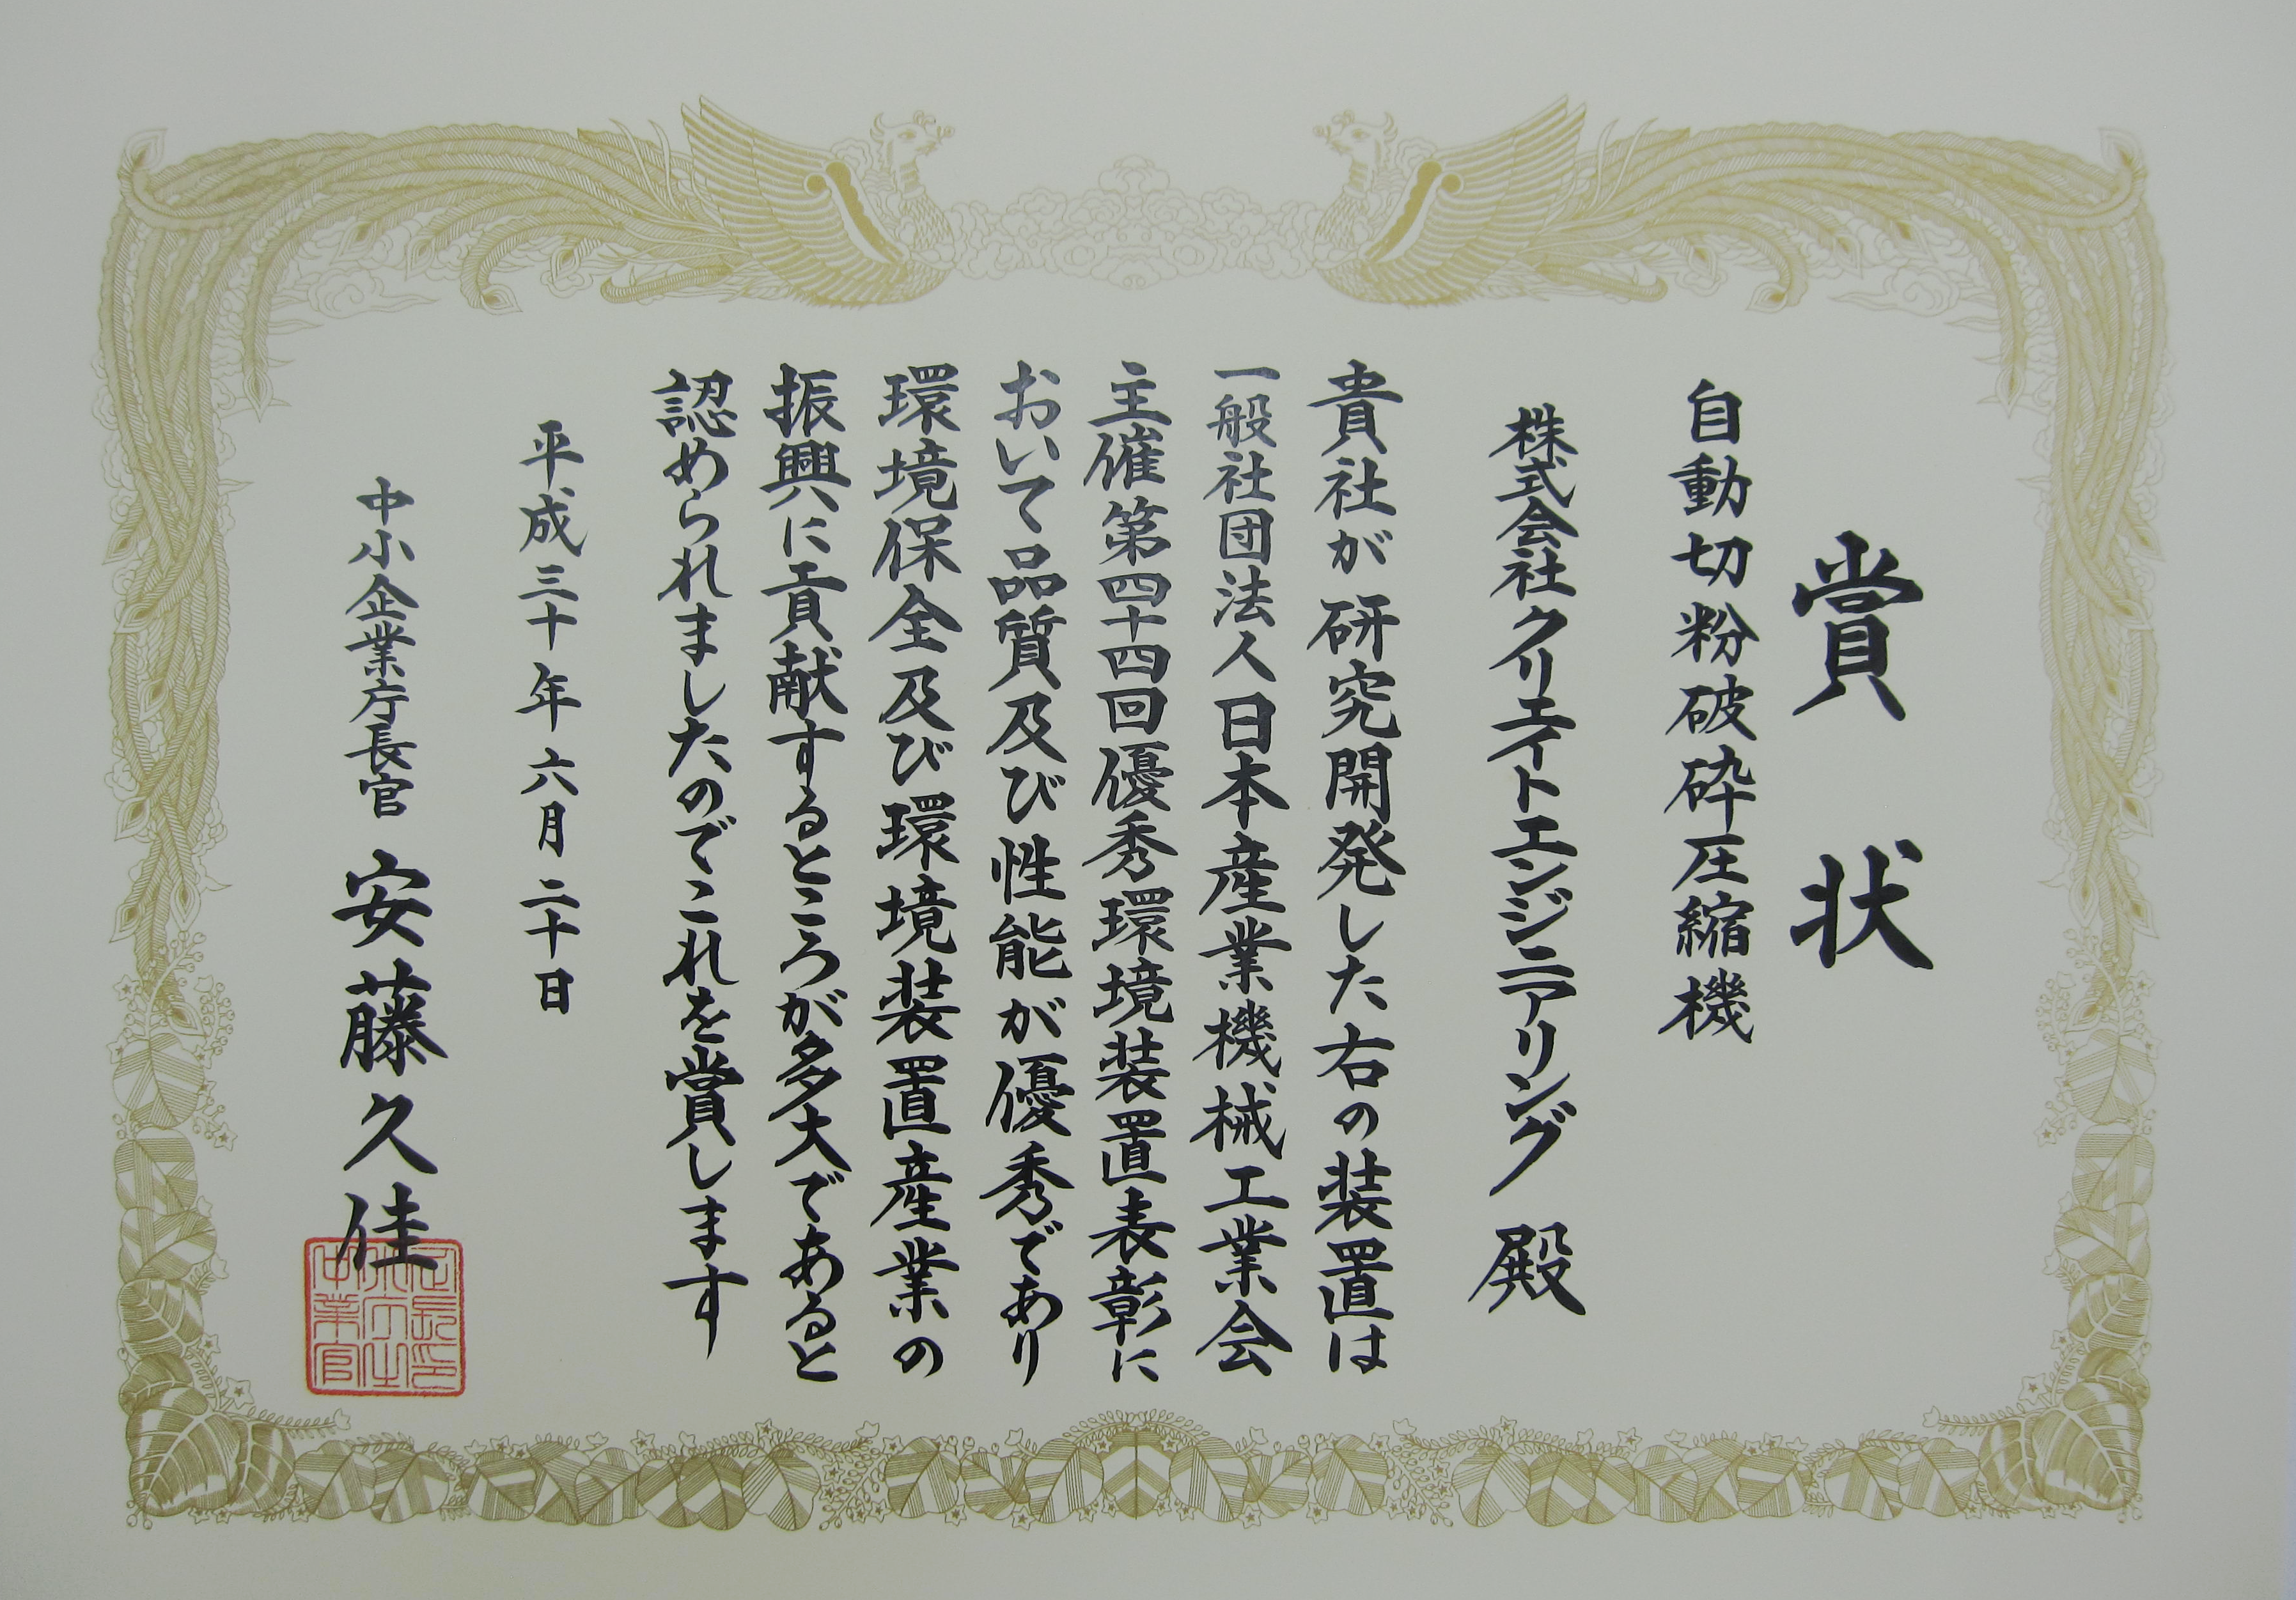 賞状
自動切粉破砕圧縮機
株式会社クリエイトエンジニアリング 殿
貴社が研究開発した右の装置は
一般社団法人日本産業機械工業会
主催第四十四回優秀環境装置表彰に
おいて品質及び性能が優秀であり
環境保全及び環境装置産業の
振興に貢献するところが多大であると
認められましたのでこれを賞します
平成三十年六月二十日
中小企業庁長官 安藤久佳